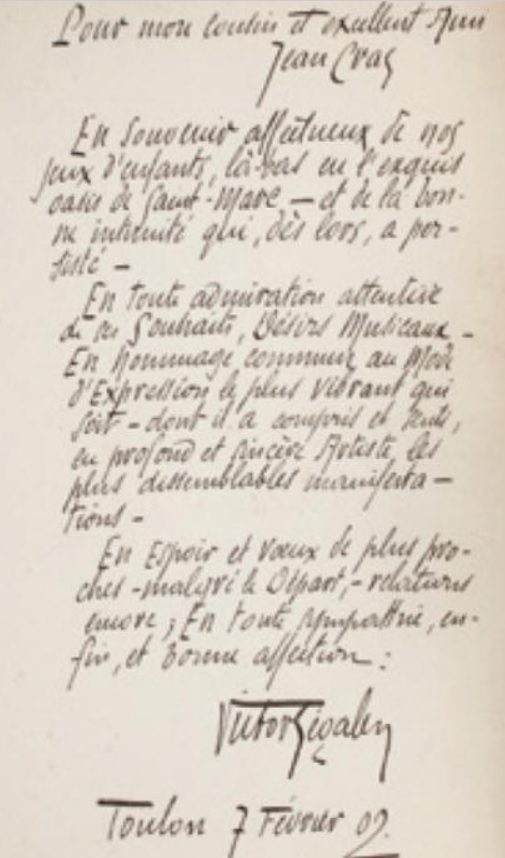 Pour mon cousin et excellent Ami
Jean Cras
En Souvenir affectueux de nos
jeux d'enfants, là-bas en l'exquis
oasis de Saint-Marc — et de la bon-
ne intimité qui, dès lors, a per-
sisté —
En toute admiration attentive
de ses Souhaits, Désirs Musicaux —
En Hommage commun au Mode
d'Expression le plus vibrant qui
soit — dont il a compris et senti,
en profond et sincère Artiste, les
plus dissemblables manifesta—
tions —
En Espoir et vœux de plus pro-
ches — malgré le Départ, — relations
encore ; En toute sympathie, en-
fin, et Bonne affection :
Victor Segalen
Toulon 7 Février 02.